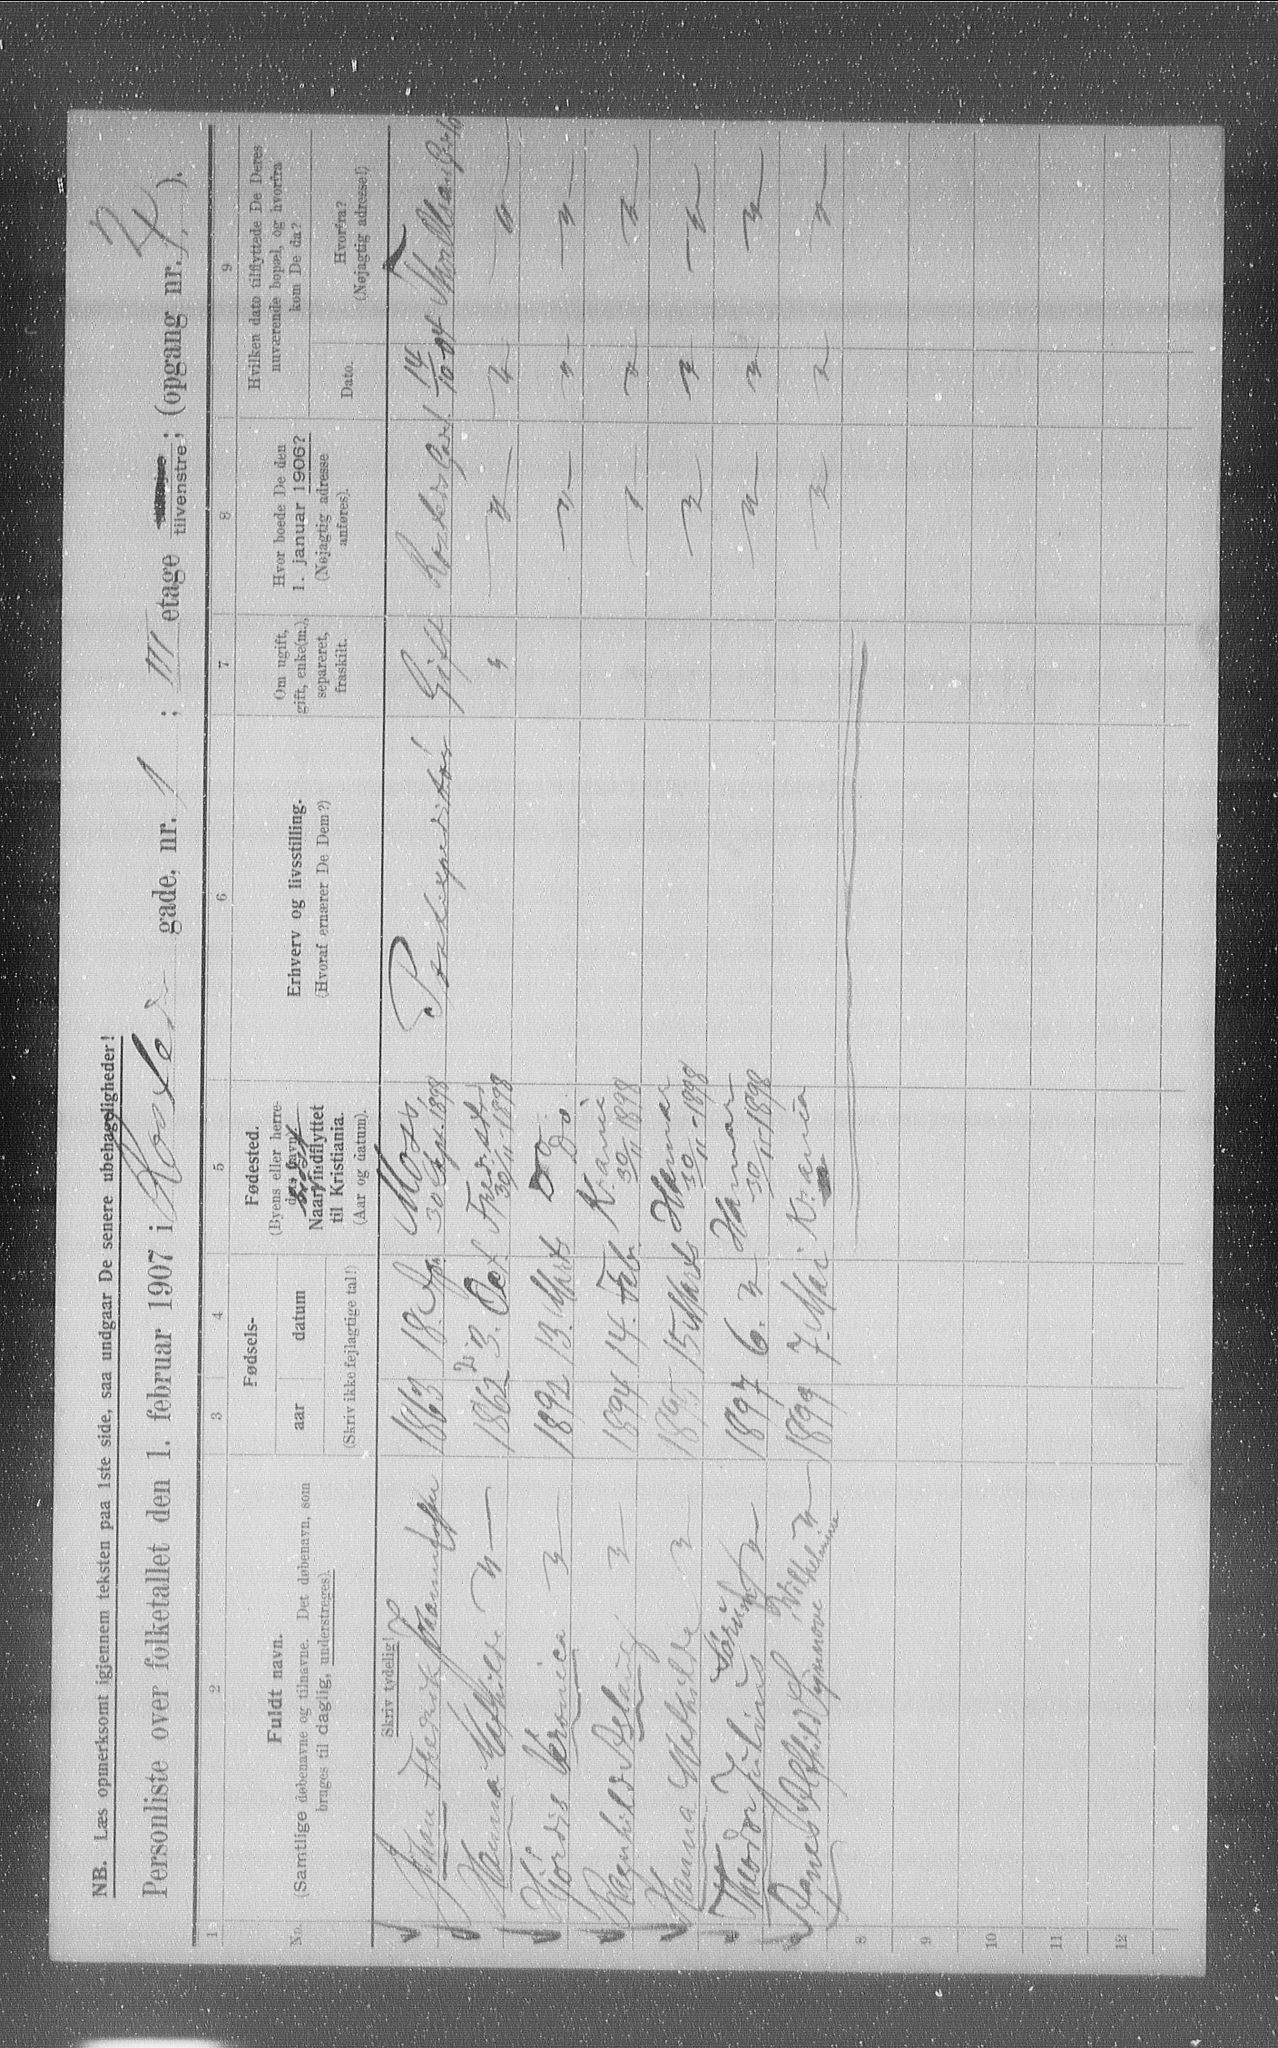 NB. Læs opmerksomt igjennem teksten paa 1ste side, saa undgaar De senere ubehageligheder!
Personliste over folketallet den 1. februar 1907 i Kosler gade, nr. 1 ; III etage tilvenstre; (opgang nr. ).
1 2 3 4 5 6 7 8 9
No.
Fuldt navn.
(Samtlige døbenavne og tilnavne. Det døbenavn, som bruges til daglig, understreges).
Fødsels-
aar datum
(Skriv ikke fejlagtige tal!)
Fødested.
(Byens eller herredets navn).
Naar indflyttet til Kristiania.
(Aar og datum).
Erhverv og livsstilling.
(Hvoraf ernærer De Dem?)
Om ugift, gift, enke(m.), separeret, fraskilt.
Hvor boede De den 1. januar 1906?
(Nøjagtig adresse anføres).
Hvilken dato tilflyttede De Deres nuværende bopæl, og hvorfra kom De da?
Dato.
Hvorfra?
(Nøjagtig adresse!)
Skriv tydelig!
Johan Fredrik 1863 18. Moss, 30 1898 Gift 14/10-04
Hanna Mathilde " — 1862 3. Oct. 30/11-1898 " — " — " — " —
Hjørdis Veronica " — 1892 13. Marts Do Do. — " — " — " —
Ragnhild Aslaug " — 1894 14. Febr. Krania 30/11 1898 — " — " — " —
Hanna Mathilde " 1895 15 Marts Hamar 30/11-1898 — " — " — " —
Theodor Julius " — 1897 6. " Hamar 30/11 1898 — " — " — " —
Agnes Alfhild Synnøve Wilhelmine " — 1899 7. Mai Krania — " — " — " —
8
9
10
11
12